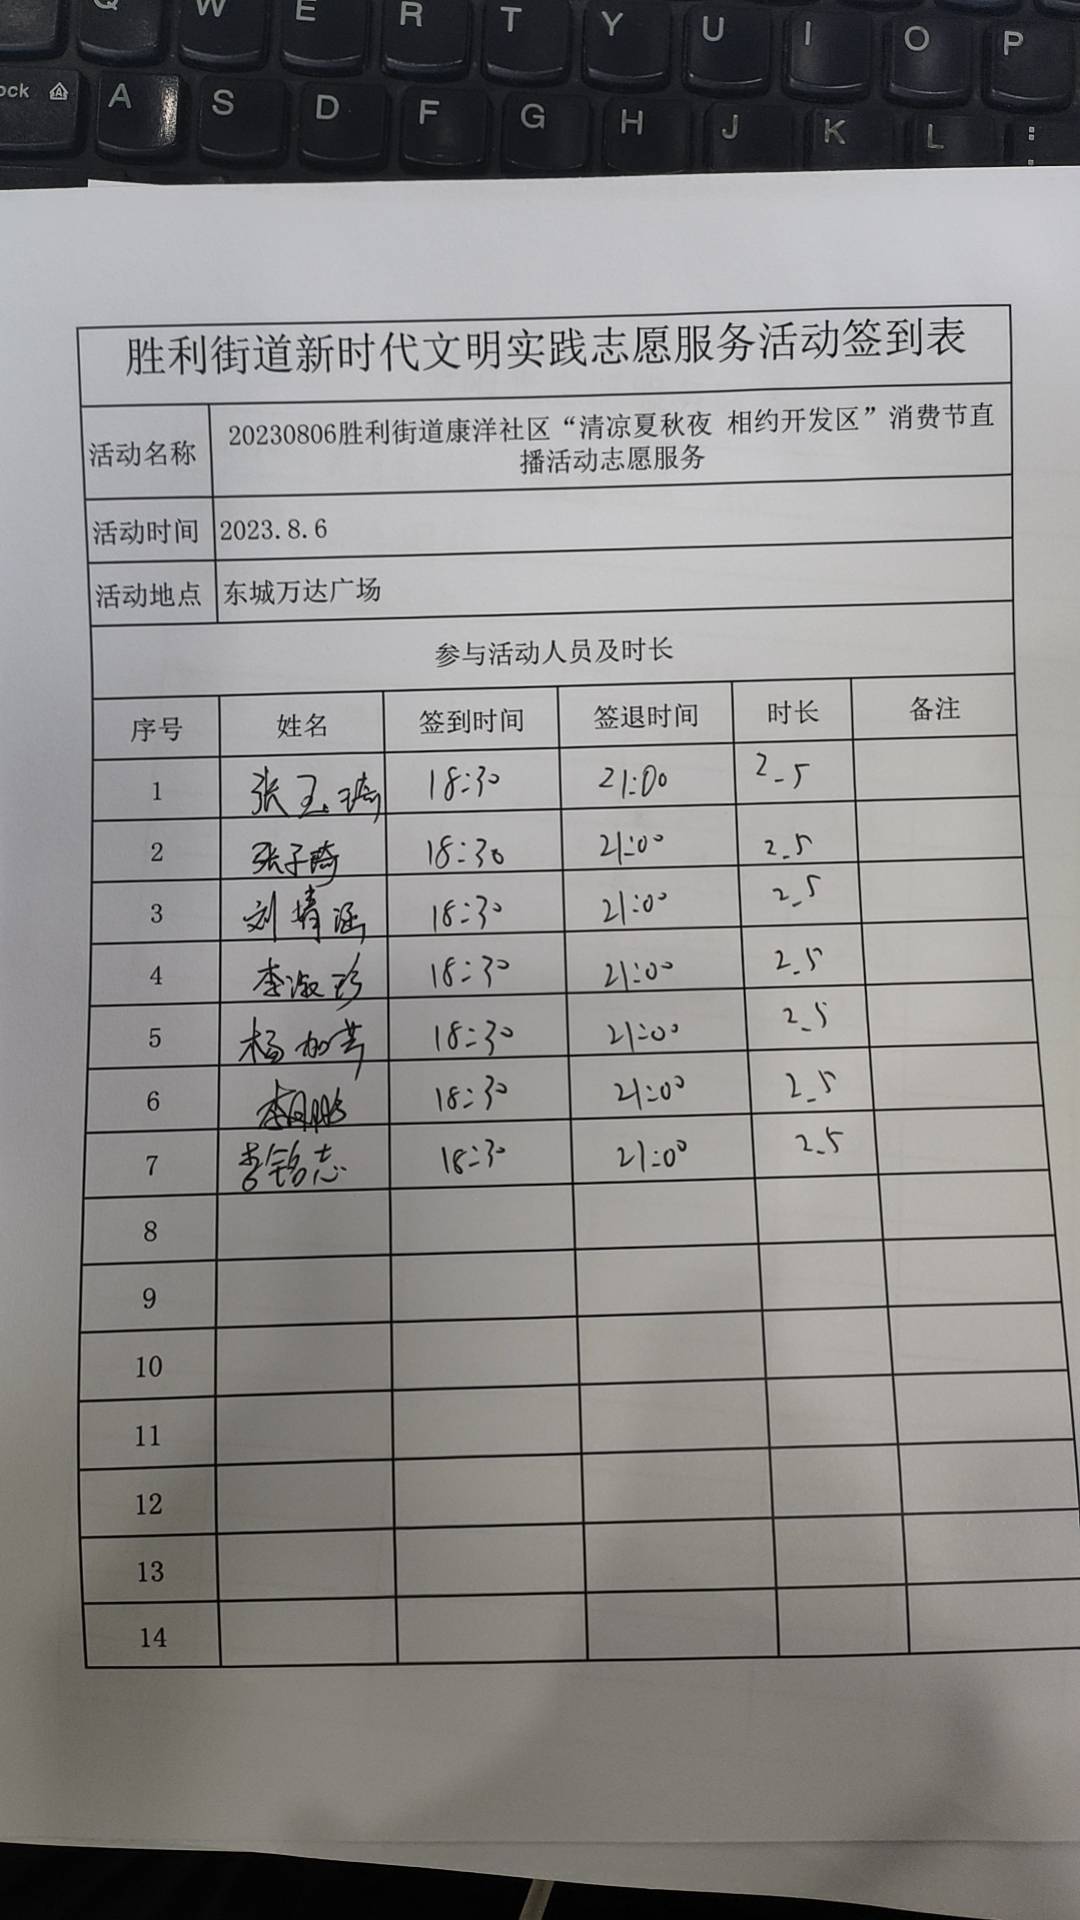 Q W E R T Y U I O P
ock A S D F G H J K L :
胜利街道新时代文明实践志愿服务活动签到表
活动名称 20230806胜利街道康洋社区“清凉夏秋夜 相约开发区”消费节直
播活动志愿服务
活动时间 2023.8.6
活动地点 东城万达广场
参与活动人员及时长
序号 姓名 签到时间 签退时间 时长 备注
1 张玉琦 18:30 21:00 2.5
2 张子琦 18:30 21:00 2.5
3 刘婧涵 18:30 21:00 2.5
4 李淑珍 18:30 21:00 2.5
5 杨加芸 18:30 21:00 2.5
6 18:30 21:00 2.5
7 李铭志 18:30 21:00 2.5
8
9
10
11
12
13
14